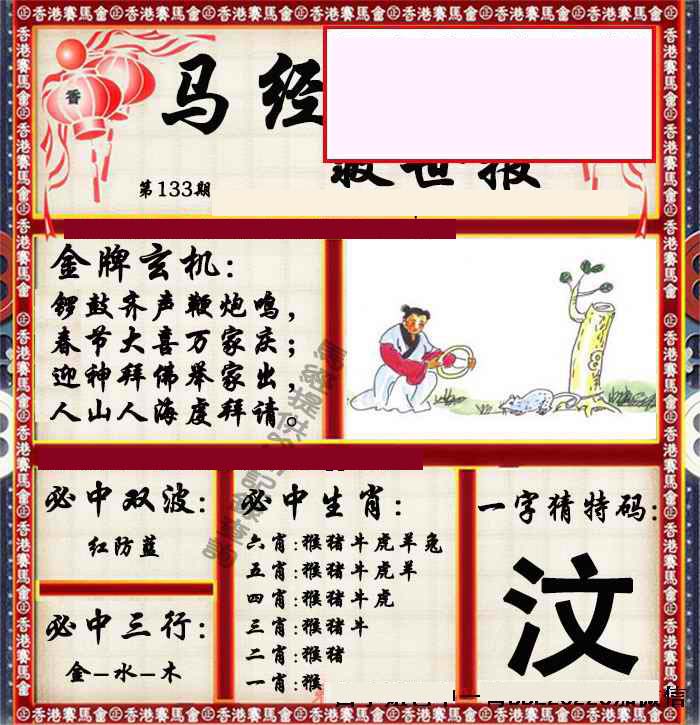 马经
救世报
第133期
香
金牌玄机:
锣鼓齐声鞭炮鸣,
春节大喜万家庆;
迎神拜佛举家出,
人山人海虔拜请。
必中双波:
红防蓝
必中三行:
金–水–木
必中生肖:
六肖:猴猪牛虎羊兔
五肖:猴猪牛虎羊
四肖:猴猪牛虎
三肖:猴猪牛
二肖:猴猪
一肖:猴
一字猜特码:
汶
香港賽馬會